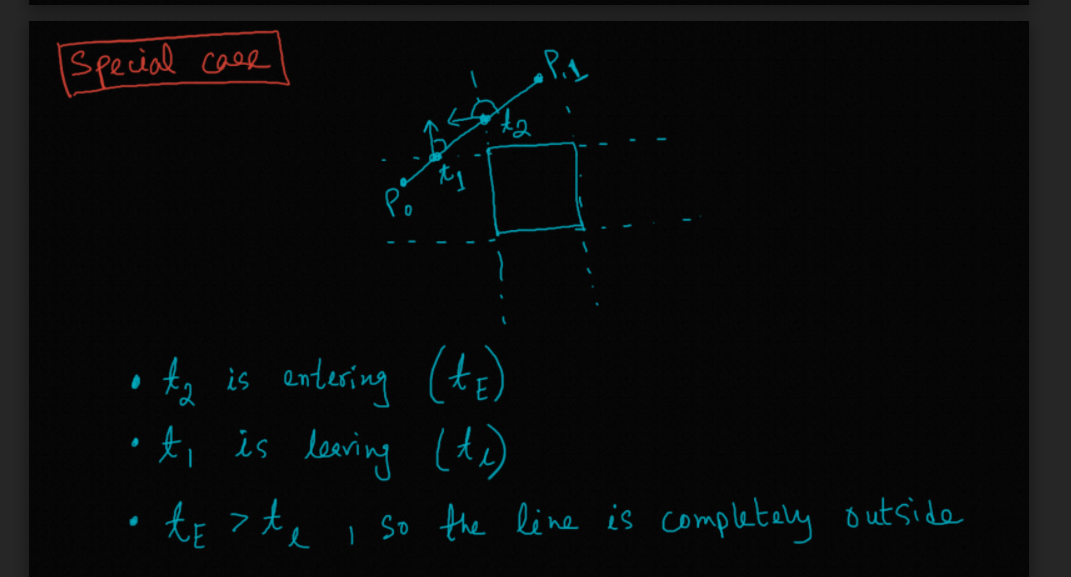 Special case
P1
t2
t1
P0
• t2 is entering (tE)
• t1 is leaving (tL)
• tE > tL, so the line is completely outside